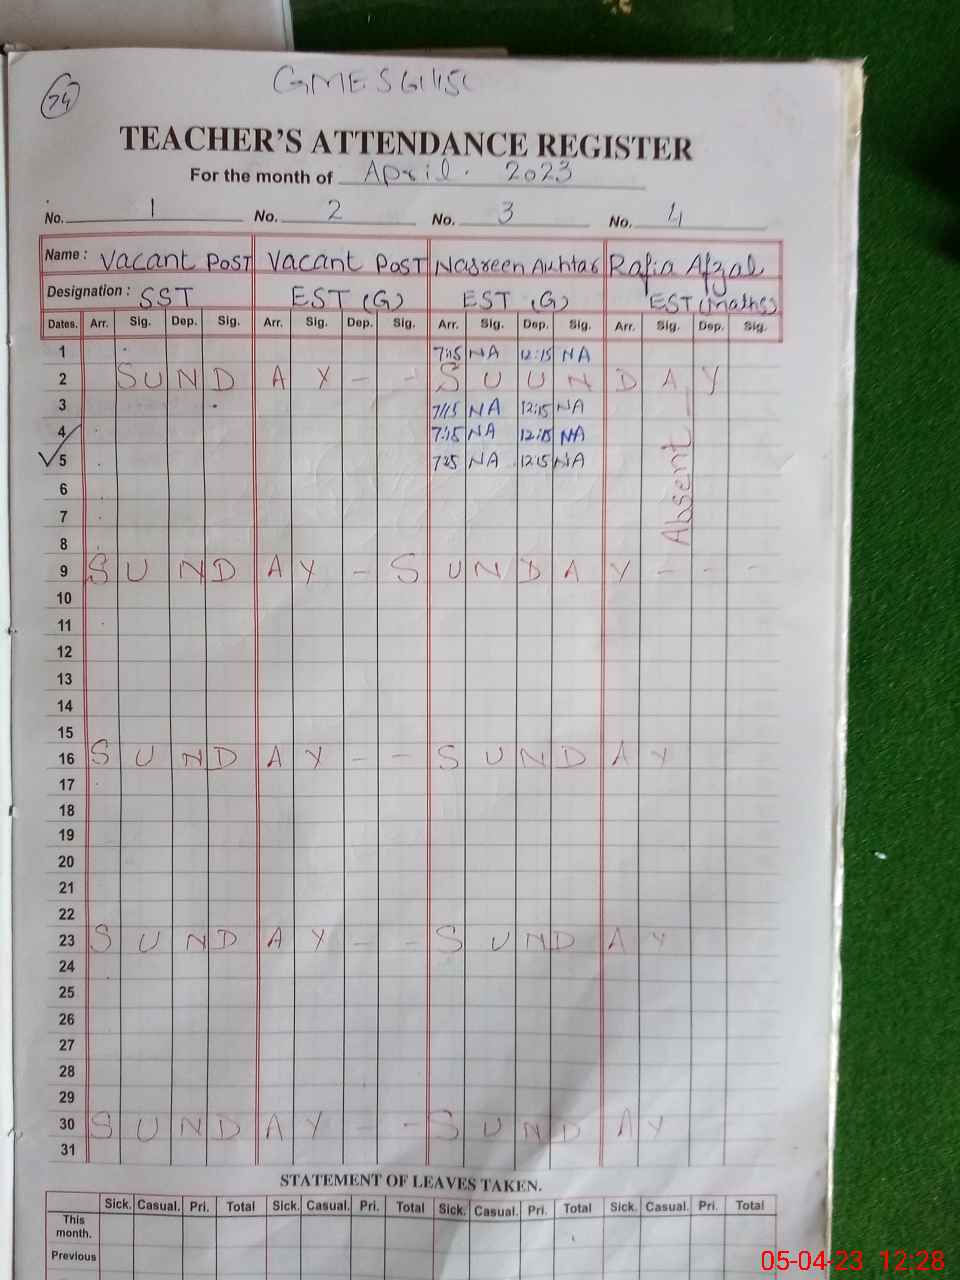 74
TEACHER'S ATTENDANCE REGISTER
For the month of April. 2023
No. 1 No. 2 No. 3 No. 4
Name : Vacant Post Vacant Post Nasreen Akhtar Rafia Afzal
Designation : SST EST (G) EST (G) EST (Maths)
Dates. Arr. Sig. Dep. Sig. Arr. Sig. Dep. Sig. Arr. Sig. Dep. Sig. Arr. Sig. Dep. Sig.
1 7:15 NA 12:15 NA
2 S U N D A Y - - S U U N D A Y
3 7:15 NA 12:15 NA
4 7:15 NA 12:15 NA
5 7:25 NA 12:15 NA
Absent
6
7
8
9 S U N D A Y - S U N D A Y - - -
10
11
12
13
14
15
16 S U N D A Y - - S U N D A Y
17
18
19
20
21
22
23 S U N D A Y - - S U N D A Y
24
25
26
27
28
29
30 S U N D A Y - - S U N D A Y
31
STATEMENT OF LEAVES TAKEN.
Sick. Casual. Pri. Total Sick. Casual. Pri. Total Sick. Casual. Pri. Total Sick. Casual. Pri. Total
This month.
Previous
05-04-23 12:28